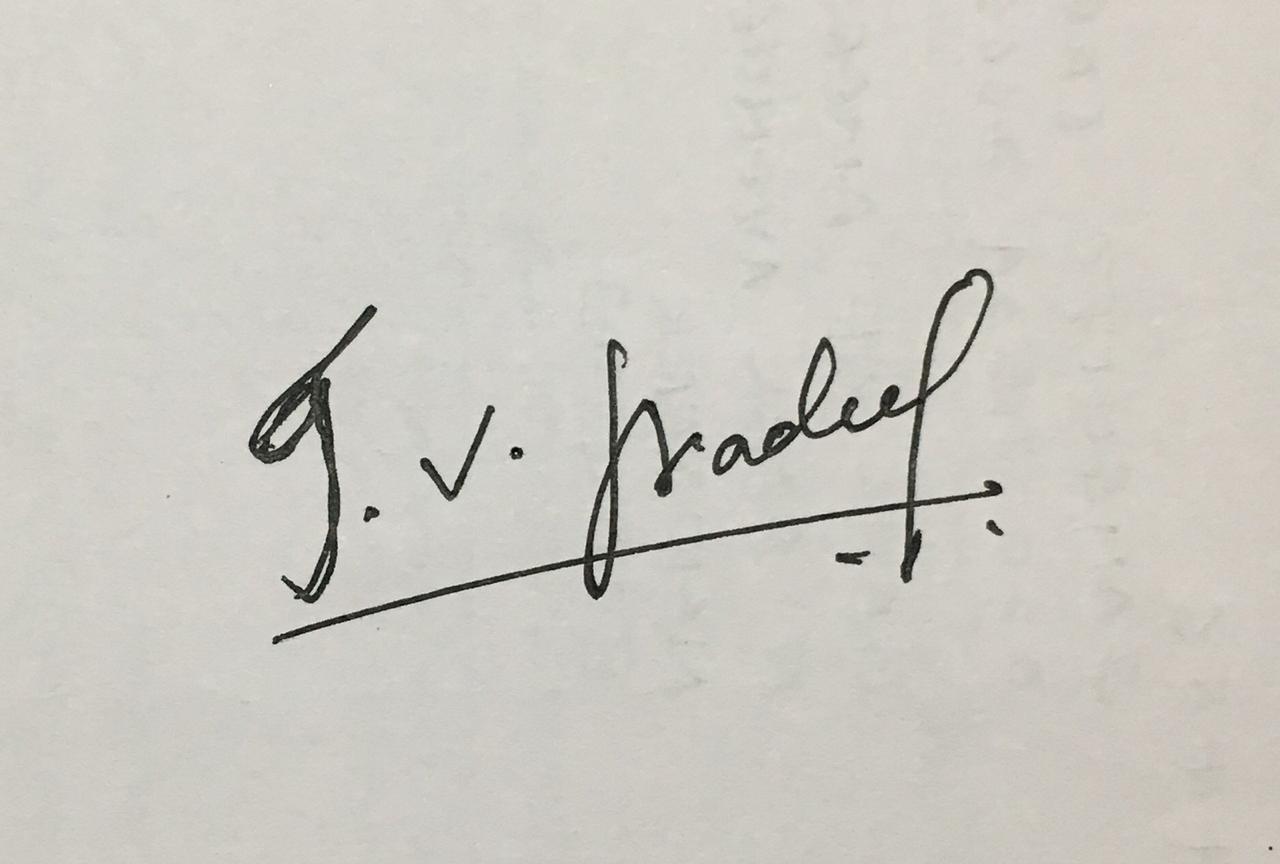 T. V. Pradeep